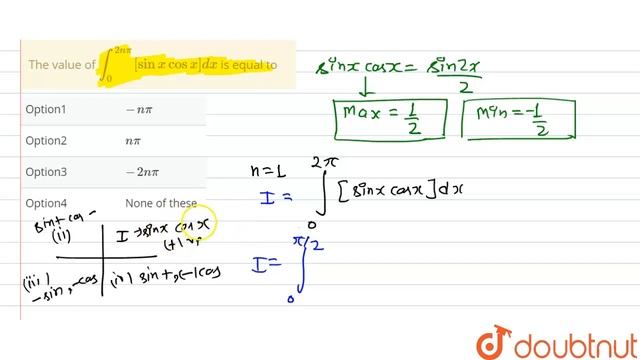 The value of ∫₀^{2nπ} [sin x cos x] dx is equal to
Option1 −nπ
Option2 nπ
Option3 −2nπ
Option4 None of these
sinx cosx = sin2x/2
max = 1/2
min = -1/2
n=1
I = ∫₀^{2π} [sinx cosx] dx
I = ∫₀^{π/2}
sin+ cos -
(ii)
I → sinx cosx
(iii)
-sin, -cos
(iv) sin+, (-) cos
doubtnut